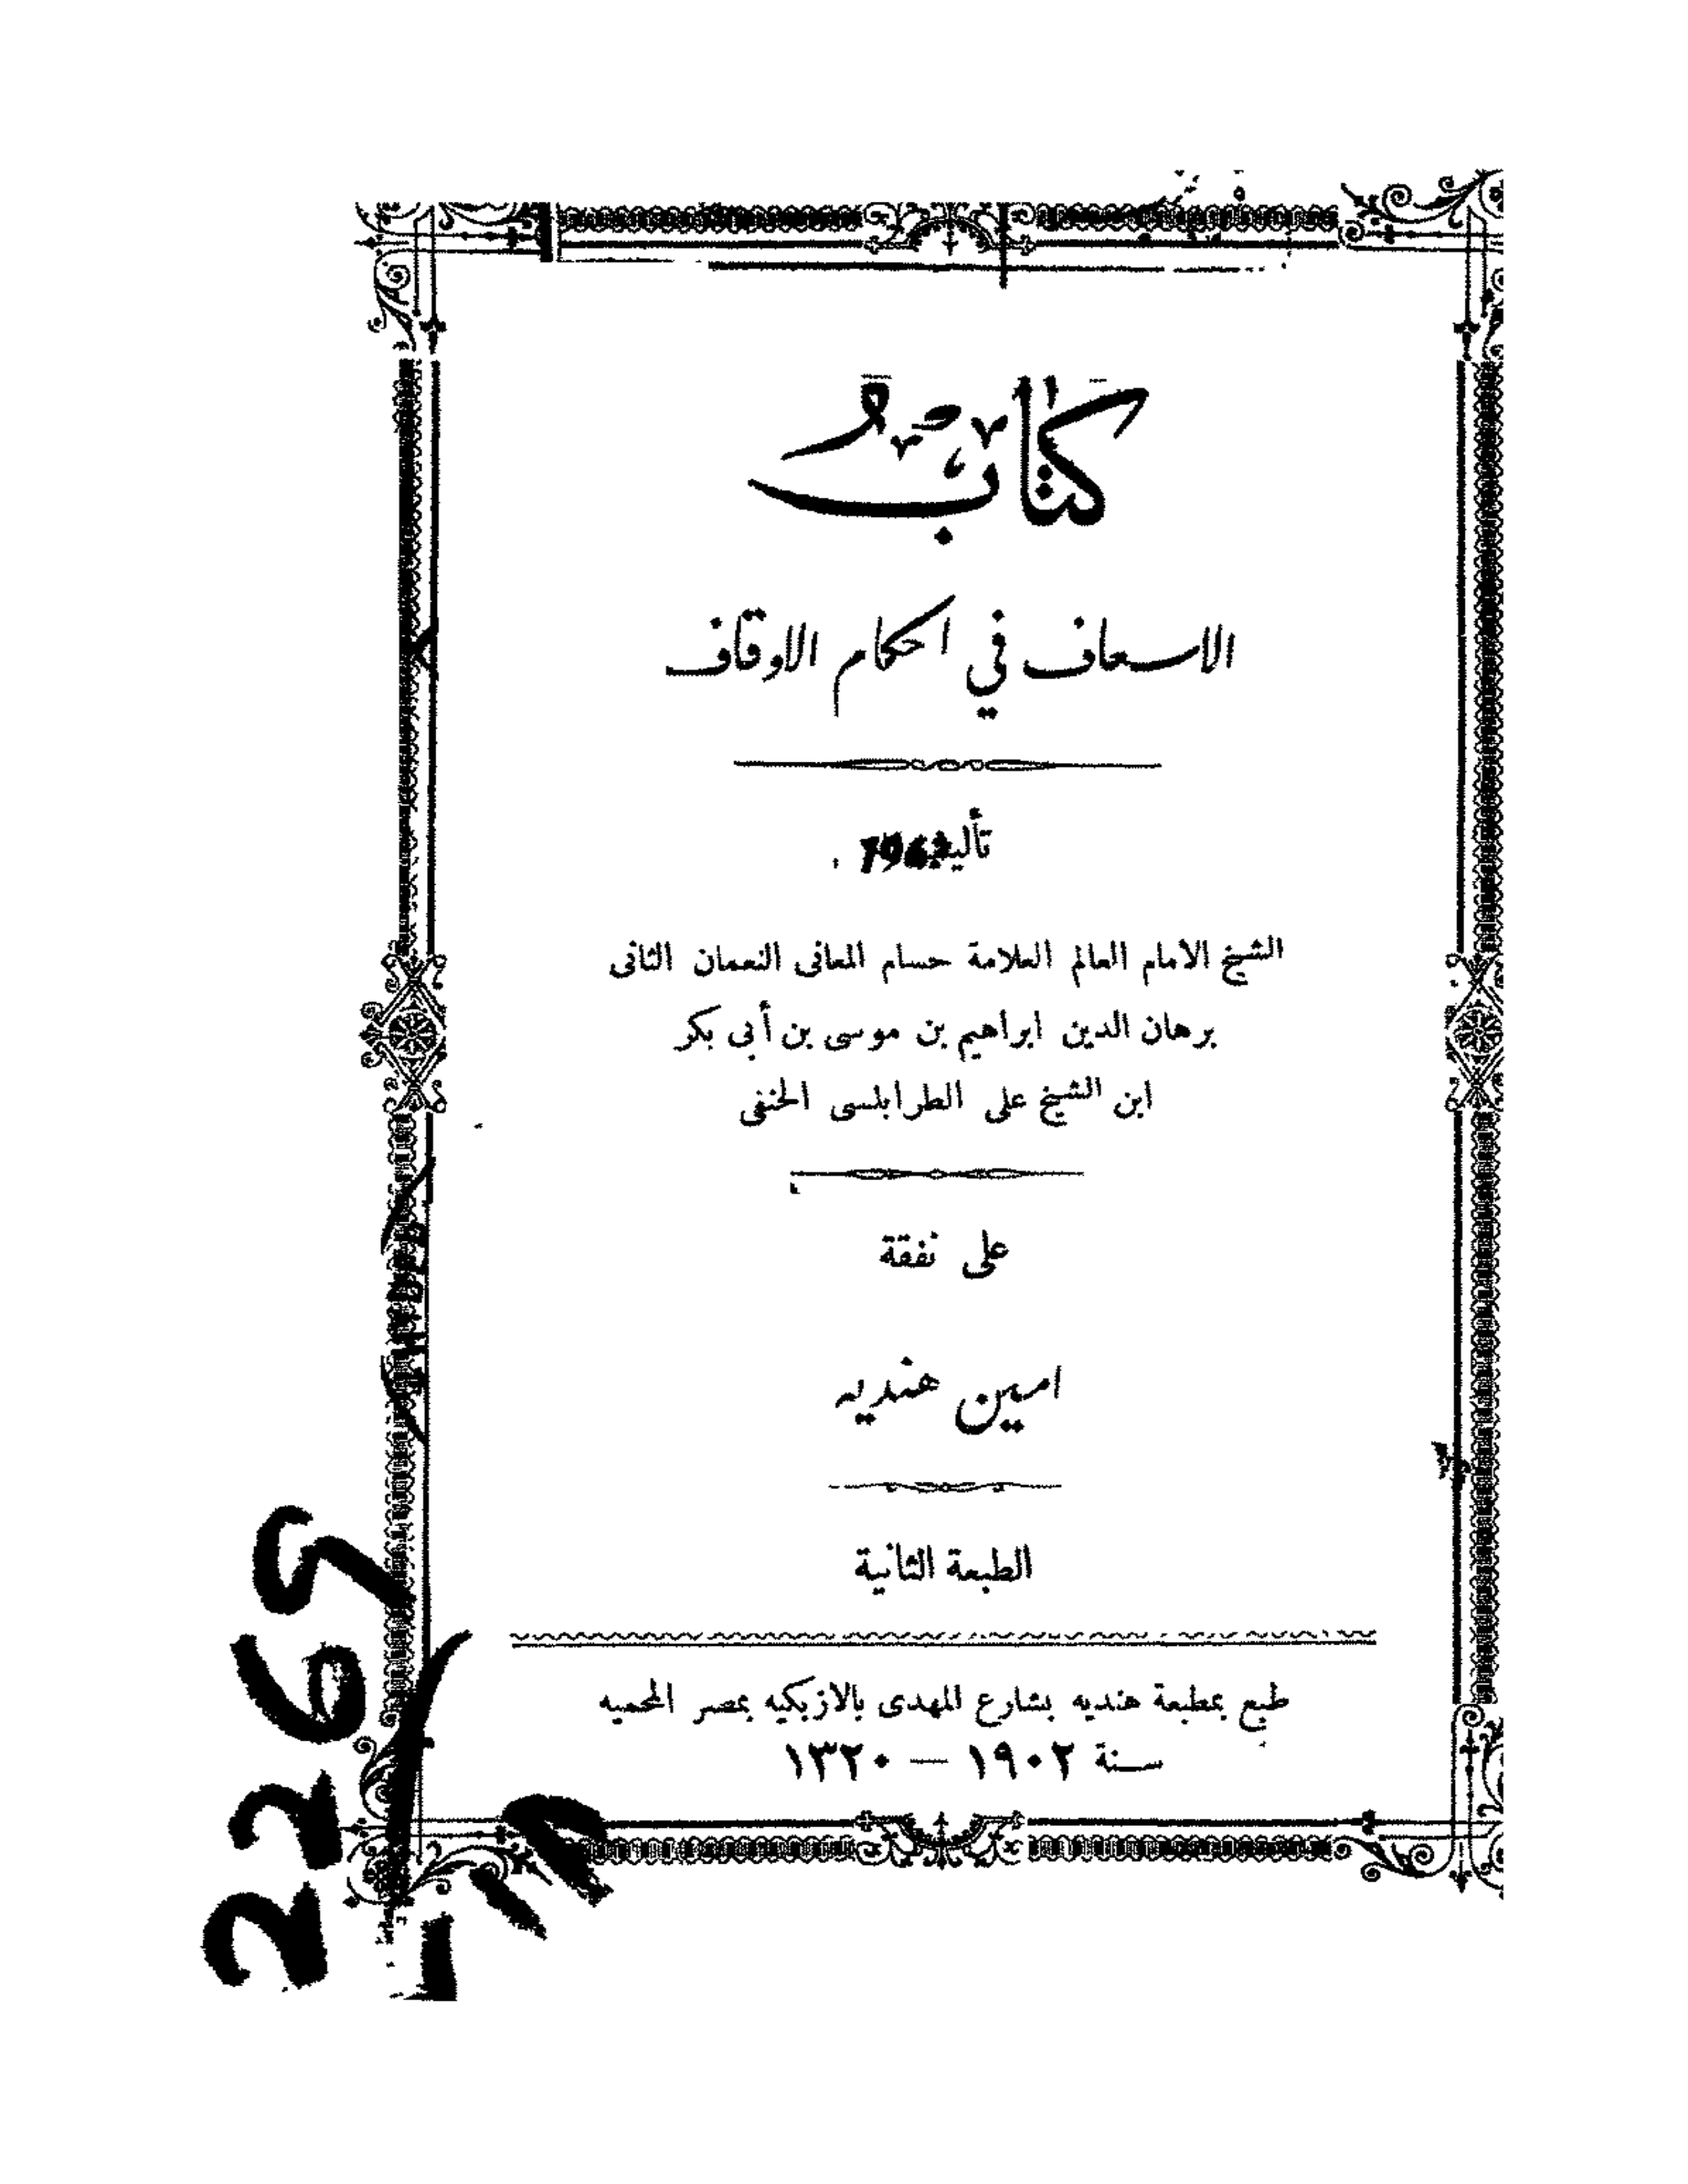 كتاب
الاسعاف في احكام الاوقاف
تأليف
الشيخ الامام العالم العلامة حسام المعانى النعمان الثانى
برهان الدين ابراهيم بن موسى بن أبى بكر
ابن الشيخ على الطرابلسى الحنفى
على نفقة
امين هنديه
الطبعة الثانية
طبع بمطبعة هنديه بشارع المهدى بالازبكيه بمصر المحميه
سنة ١٩٠٢ — ١٣٢٠
2269